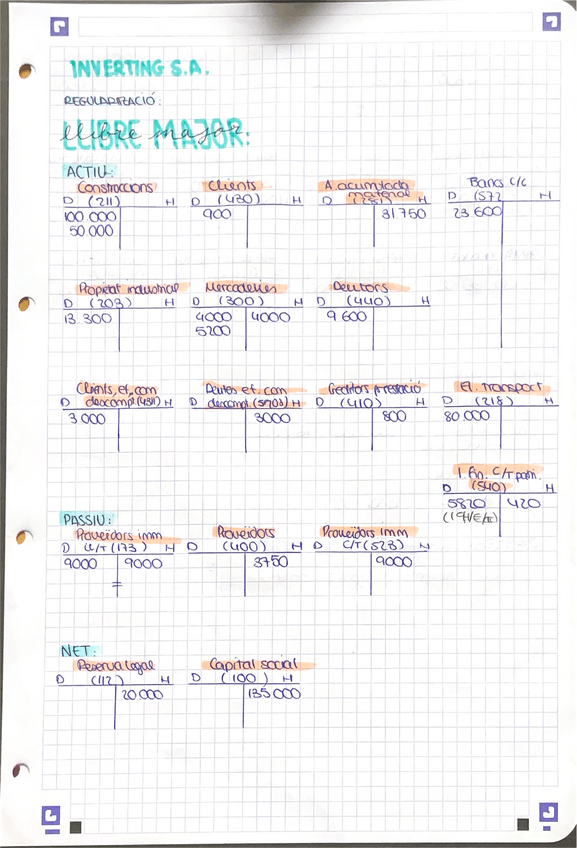 INVERTING S.A.
REGULARITZACIÓ:
LLIBRE MAJOR:
llibre major.
ACTIU:
Construccions
D (211) H
100 000
50 000
Clients
D (430) H
900
A. acumulada
material
D (281) H
31 750
Bancs c/c
D (572 H
23 600
Propietat industrial
D (203) H
13 300
Mercaderies
D (300) H
4000 4000
5200
Deutors
D (440) H
9 600
Clients, ef. com
D descompt (4311) H
3 000
Deutes ef. com
D descompt. (5208) H
3000
Creditors prestació
D (410) H
800
El. transport
D (218) H
80 000
I. fin. C/T patri.
D (540) H
5820 420
PASSIU:
Proveïdors imm
D Ll/T (173) H
9000 9000
Proveïdors
D (400) H
3750
Proveïdors imm
D C/T (523) H
9000
NET:
Reserva legal
D (112) H
20 000
Capital social
D (100) H
135 000